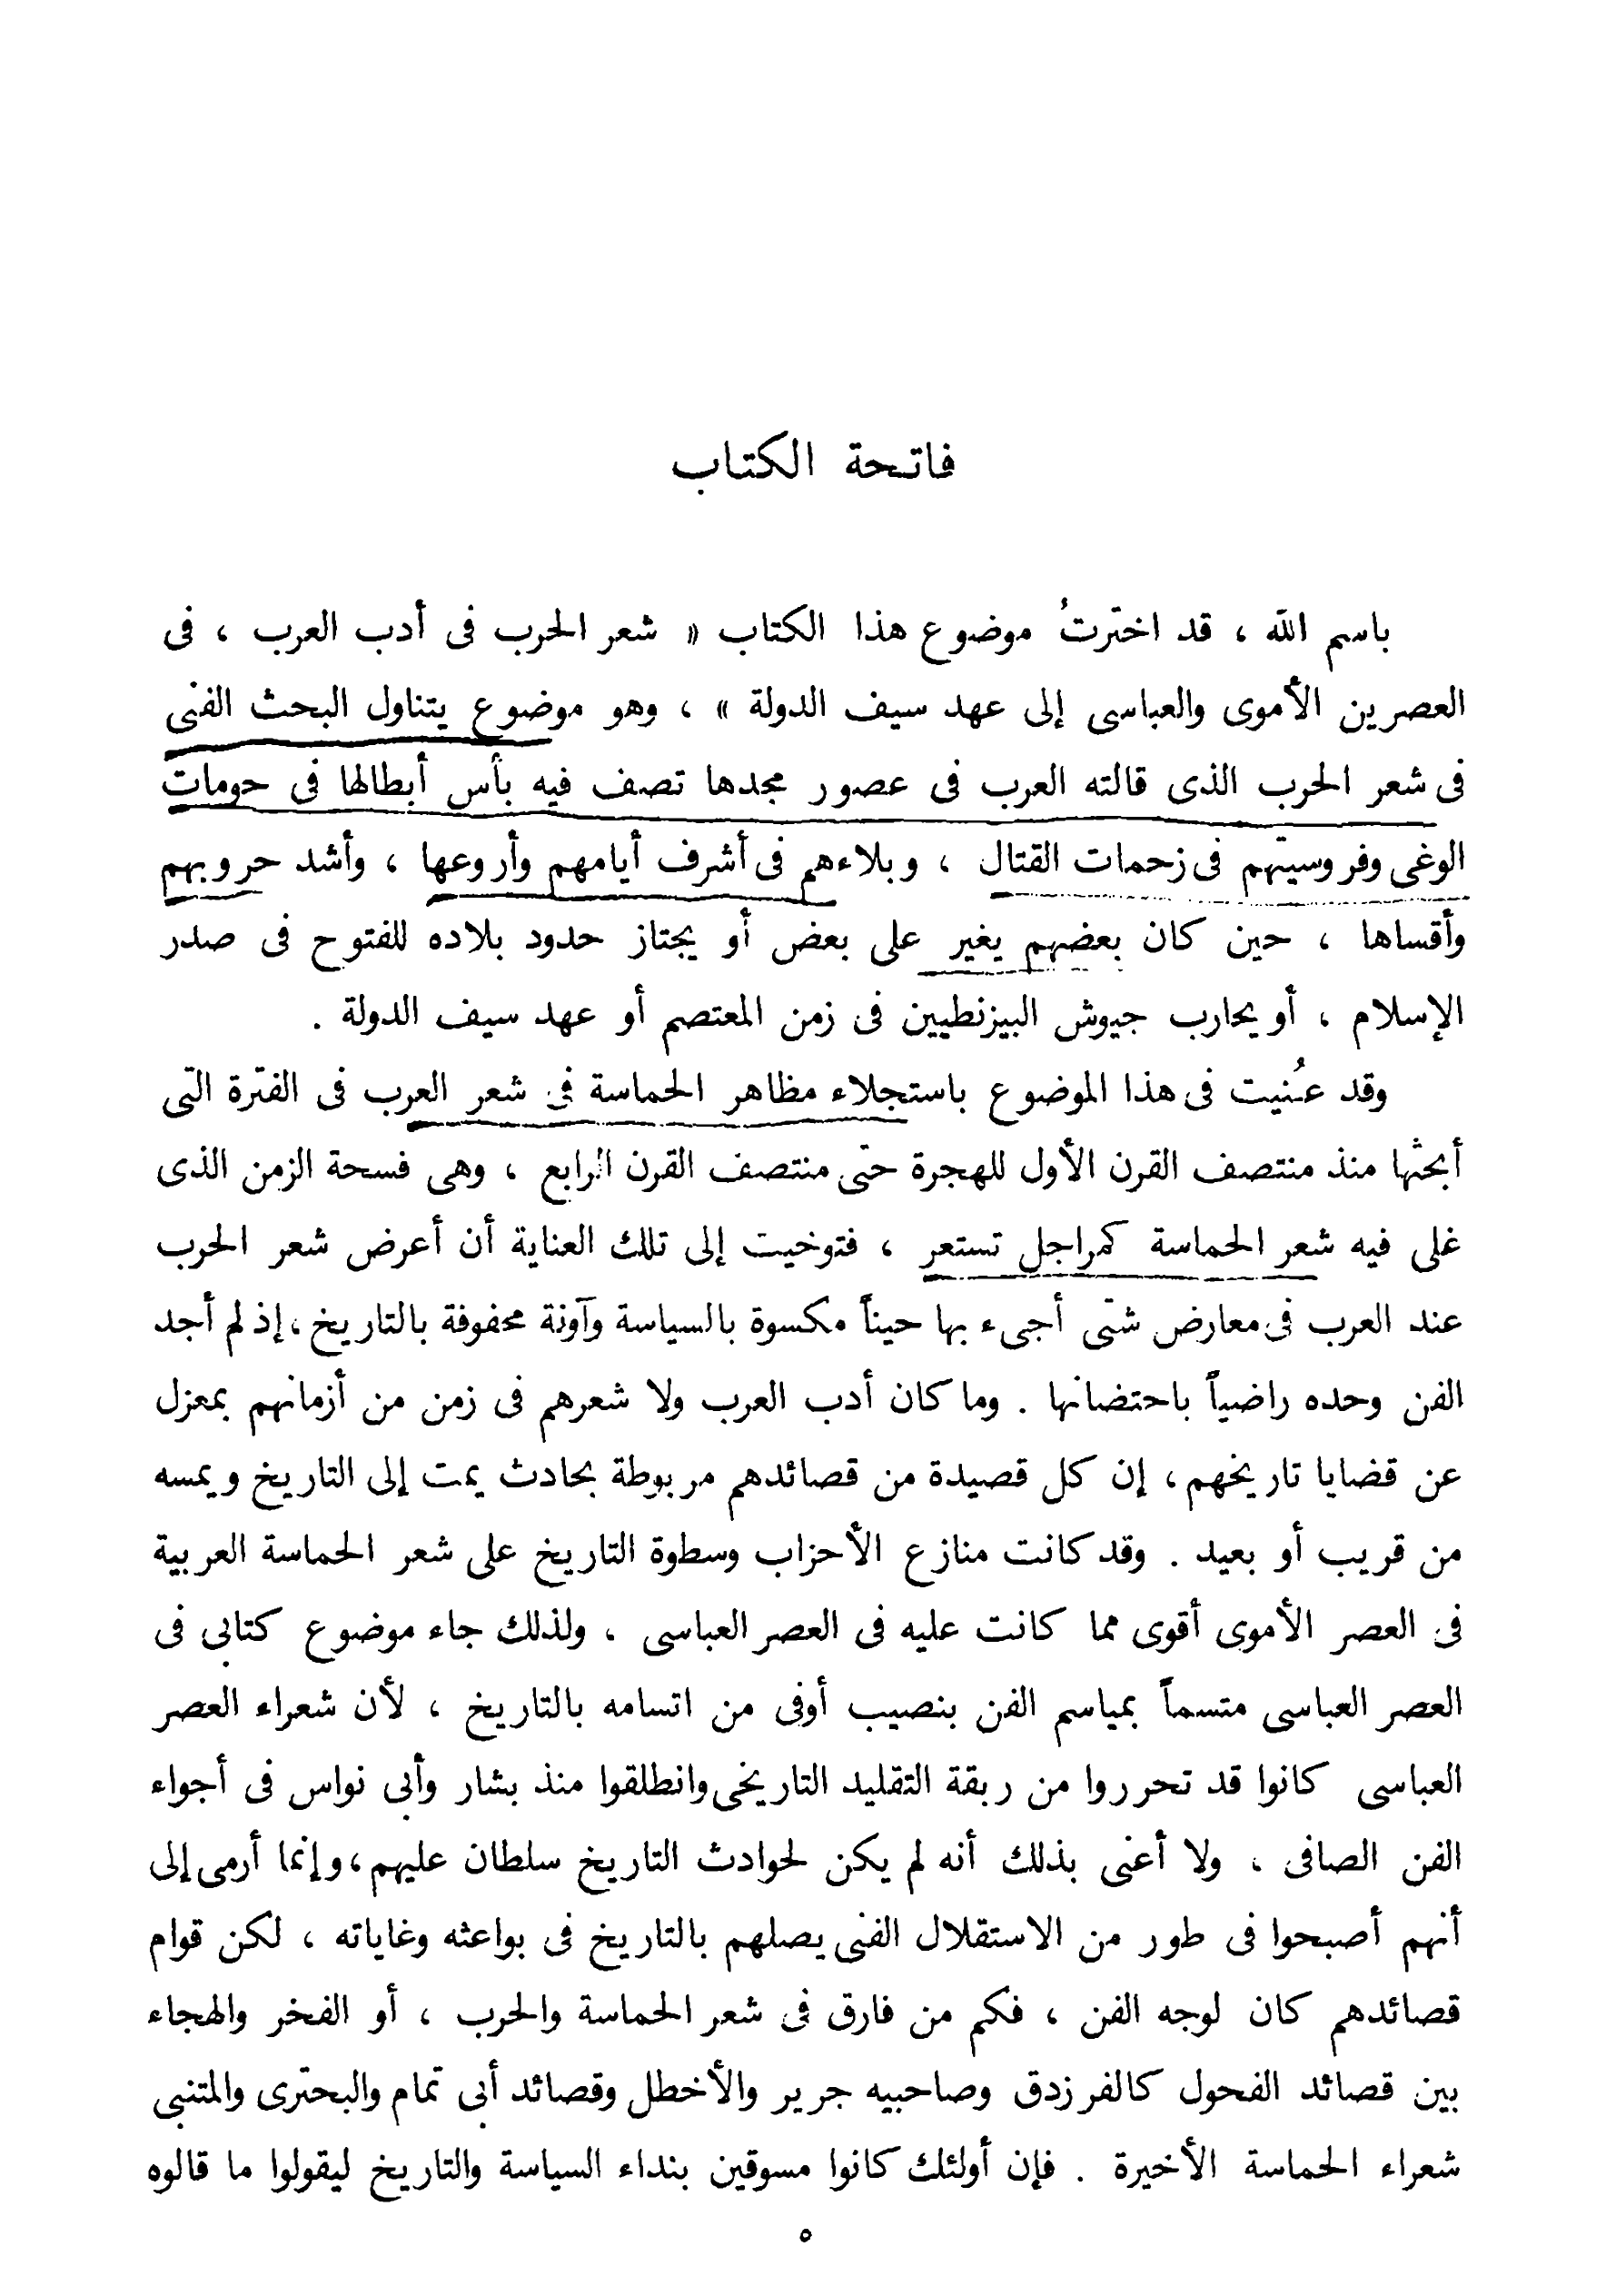 فاتحة الكتاب
باسم الله ، قد اخترتُ موضوع هذا الكتاب « شعر الحرب فى أدب العرب ، فى
العصرين الأموى والعباسى إلى عهد سيف الدولة » ، وهو موضوع يتناول البحث الفنى
فى شعر الحرب الذى قالته العرب فى عصور مجدها تصف فيه بأس أبطالها فى حومات
الوغى وفروسيتهم فى زحمات القتال ، وبلاءهم فى أشرف أيامهم وأروعها ، وأشد حروبهم
وأقساها ، حين كان بعضهم يغير على بعض أو يجتاز حدود بلاده للفتوح فى صدر
الإسلام ، أو يحارب جيوش البيزنطيين فى زمن المعتصم أو عهد سيف الدولة .
وقد عُنيت فى هذا الموضوع باستجلاء مظاهر الحماسة فى شعر العرب فى الفترة التى
أبحثها منذ منتصف القرن الأول للهجرة حتى منتصف القرن الرابع ، وهى فسحة الزمن الذى
غلى فيه شعر الحماسة كمراجل تستعر ، فتوخيت إلى تلك العناية أن أعرض شعر الحرب
عند العرب فى معارض شتى أجىء بها حيناً مكسوة بالسياسة وآونة محفوفة بالتاريخ ، إذ لم أجد
الفن وحده راضياً باحتضانها . وما كان أدب العرب ولا شعرهم فى زمن من أزمانهم بمعزل
عن قضايا تاريخهم ، إن كل قصيدة من قصائدهم مربوطة بحادث يمت إلى التاريخ ويمسه
من قريب أو بعيد . وقد كانت منازع الأحزاب وسطوة التاريخ على شعر الحماسة العربية
فى العصر الأموى أقوى مما كانت عليه فى العصر العباسى . ولذلك جاء موضوع كتابى فى
العصر العباسى متسماً بمياسم الفن بنصيب أوفى من اتسامه بالتاريخ ، لأن شعراء العصر
العباسى كانوا قد تحرروا من ربقة التقليد التاريخى وانطلقوا منذ بشار وأبى نواس فى أجواء
الفن الصافى . ولا أعنى بذلك أنه لم يكن لحوادث التاريخ سلطان عليهم ، وإنما أرمى إلى
أنهم أصبحوا فى طور من الاستقلال الفنى يصلهم بالتاريخ فى بواعثه وغاياته ، لكن قوام
قصائدهم كان لوجه الفن ، فكم من فارق فى شعر الحماسة والحرب ، أو الفخر والهجاء
بين قصائد الفحول كالفرزدق وصاحبيه جرير والأخطل وقصائد أبى تمام والبحترى والمتنبى
شعراء الحماسة الأخيرة . فإن أولئك كانوا مسوقين بنداء السياسة والتاريخ ليقولوا ما قالوه
٥